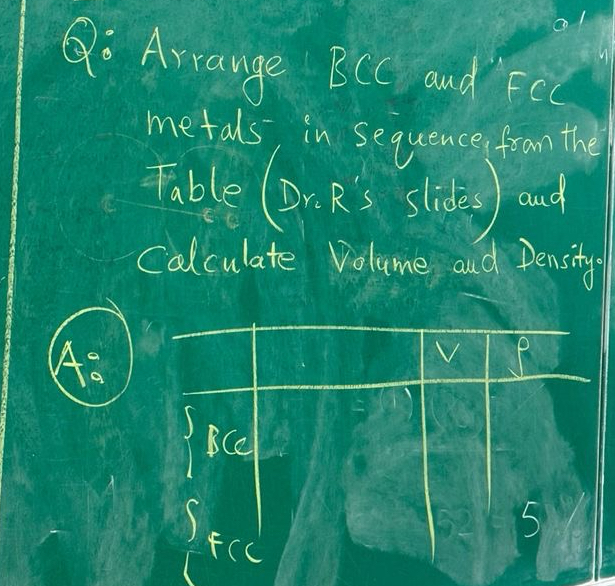 Q: Arrange BCC and FCC
metals in sequence, from the
Table (Dr. R's slides) and
Calculate Volume and Density.
A:
V ρ
BCC
FCC
5